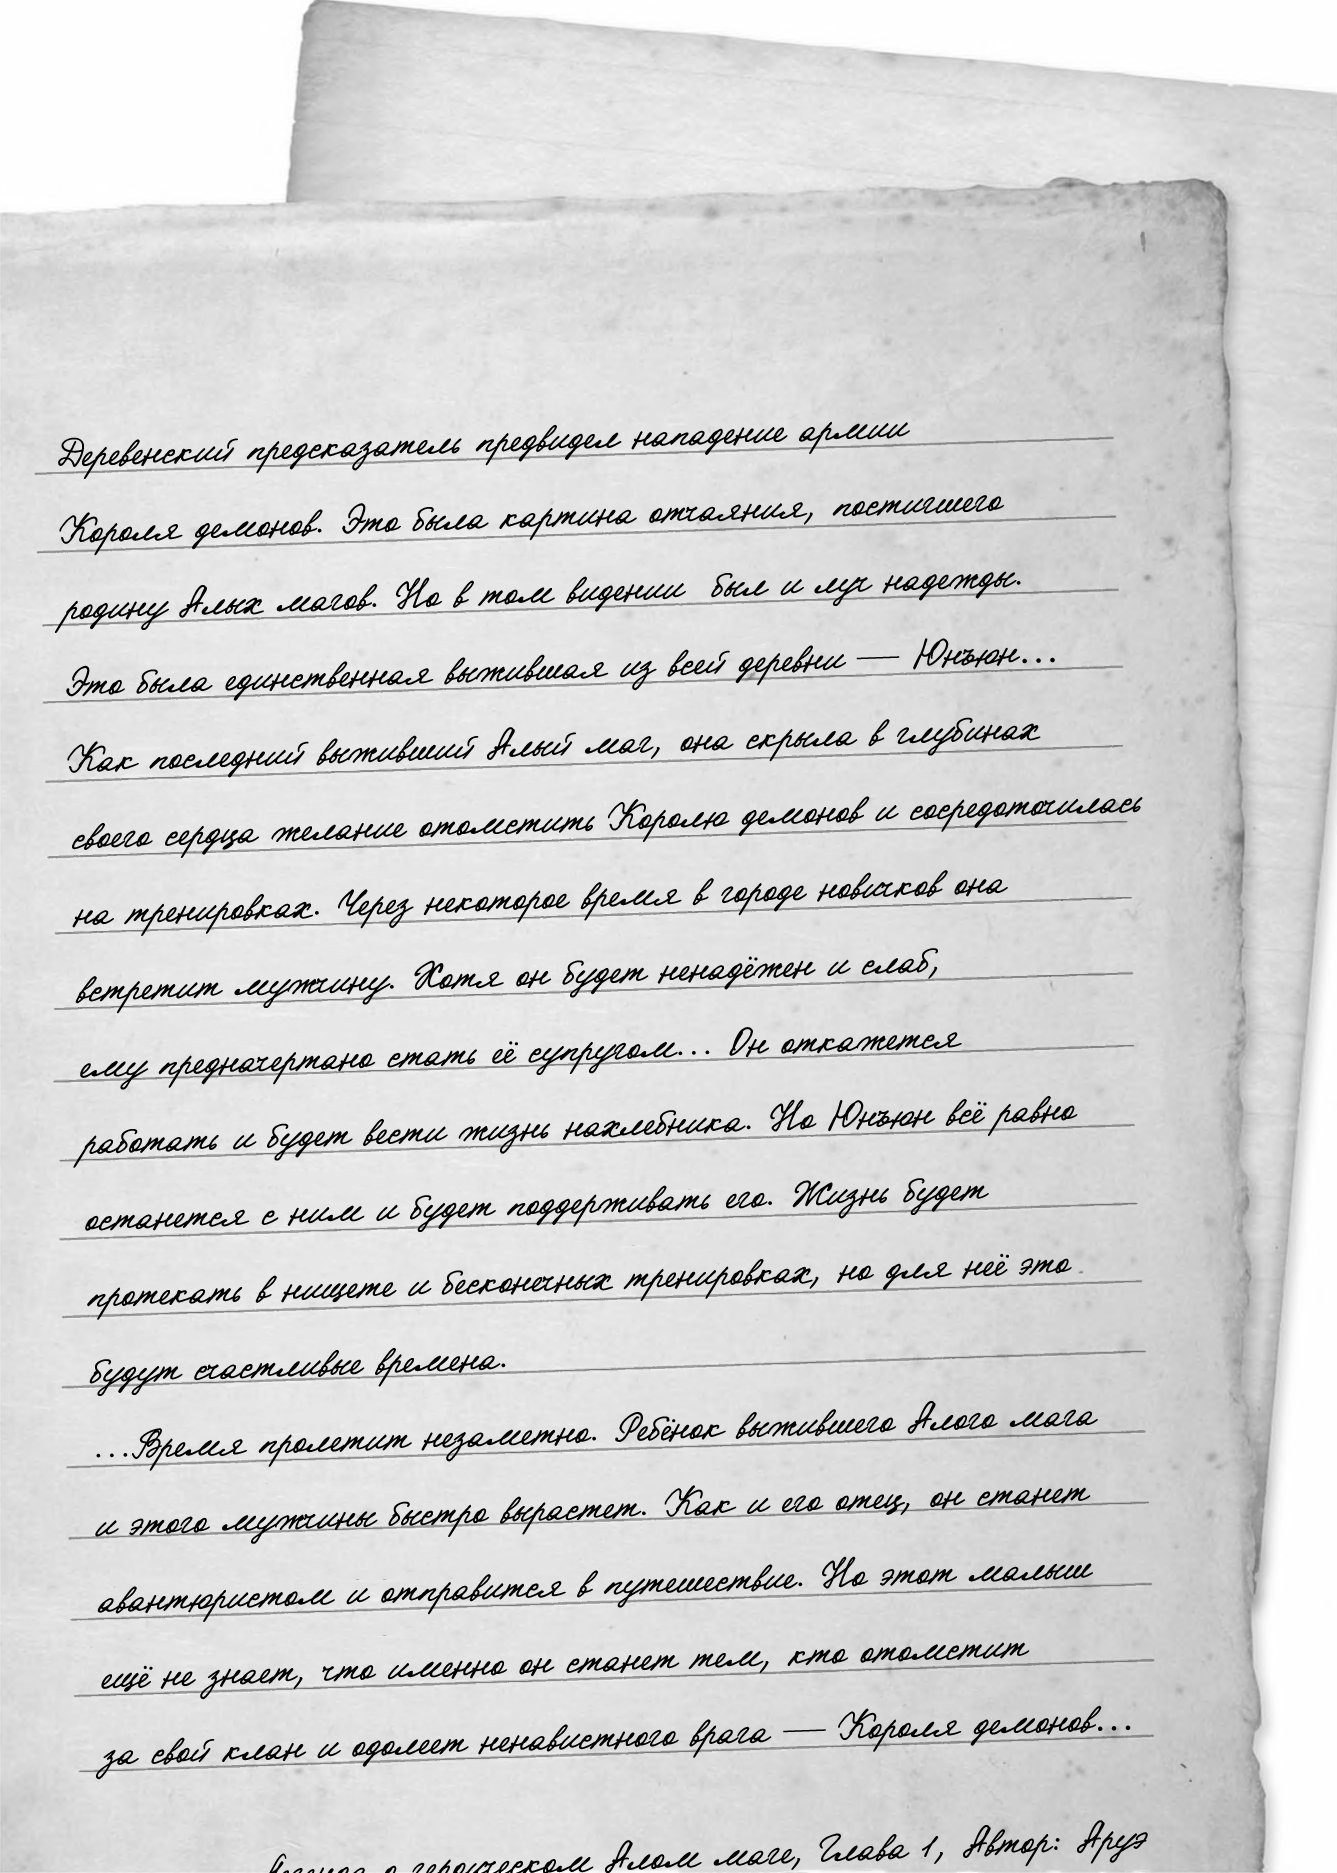 Деревенский предсказатель предвидел нападение армии
Короля демонов. Это была картина отчаяния, постигшего
родину Алых магов. Но в том видении был и луч надежды.
Это была единственная выжившая из всей деревни — Юнъюн...
Как последний выживший Алый маг, она скрыла в глубинах
своего сердца желание отомстить Королю демонов и сосредоточилась
на тренировках. Через некоторое время в городе новичков она
встретит мужчину. Хотя он будет ненадёжен и слаб,
ему предначертано стать её супругом... Он откажется
работать и будет вести жизнь нахлебника. Но Юнъюн всё равно
останется с ним и будет поддерживать его. Жизнь будет
протекать в нищете и бесконечных тренировках, но для неё это
будут счастливые времена.
...Время пролетит незаметно. Ребёнок выжившего Алого мага
и этого мужчины быстро вырастет. Как и его отец, он станет
авантюристом и отправится в путешествие. Но этот малыш
ещё не знает, что именно он станет тем, кто отомстит
за свой клан и одолеет ненавистного врага — Короля демонов...
о героическом Алом маге, Глава 1, Автор: Аруэ